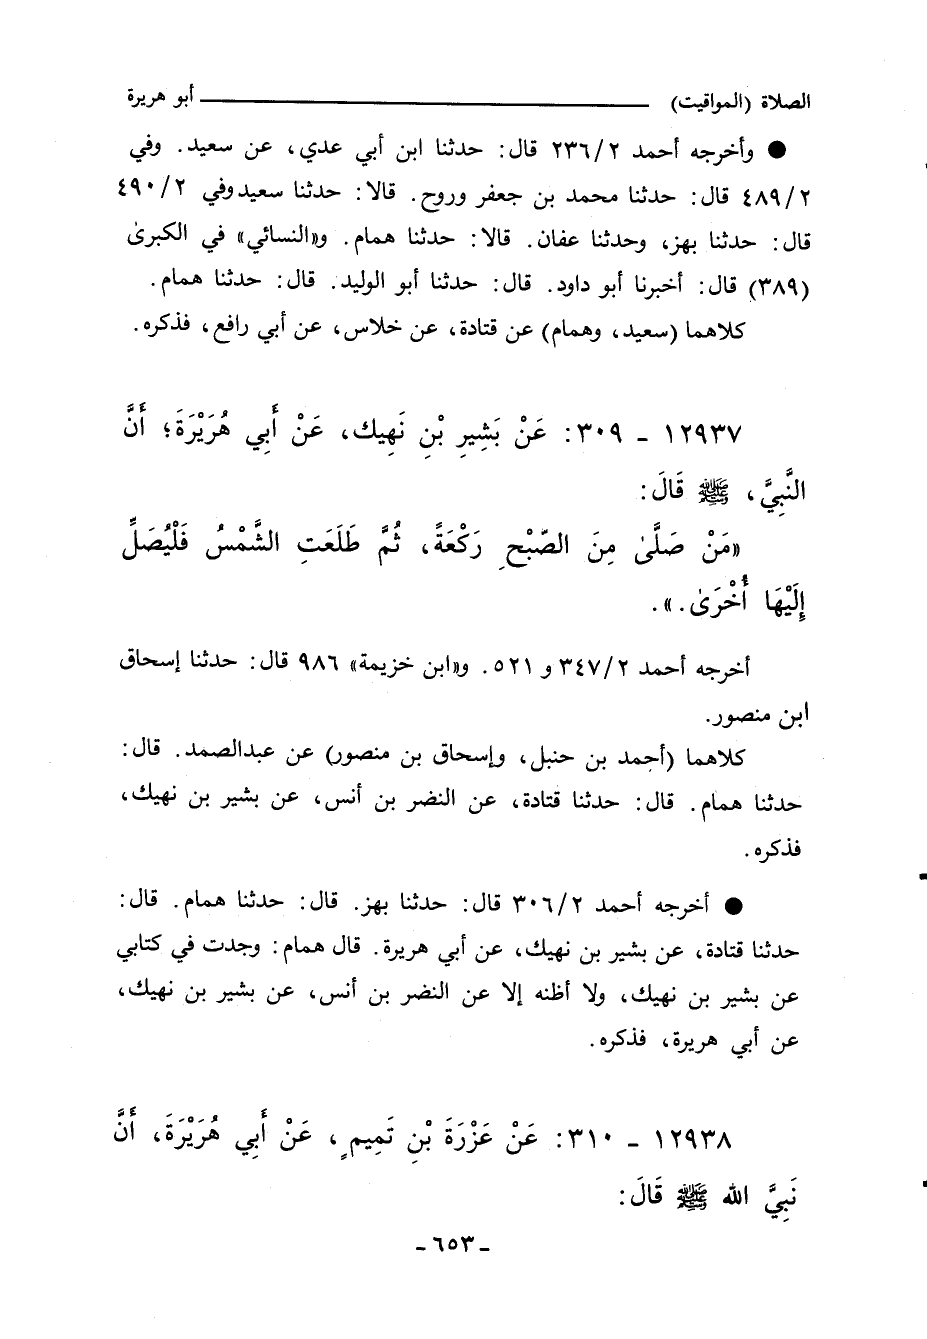 الصلاة (المواقيت) أبو هريرة
● وأخرجه أحمد ٢/٢٣٦ قال: حدثنا ابن أبي عدي، عن سعيد. وفي
٢/٤٨٩ قال: حدثنا محمد بن جعفر وروح. قالا: حدثنا سعيد وفي ٢/٤٩٠
قال: حدثنا بهز، وحدثنا عفان. قالا: حدثنا همام. و«النسائي» في الكبرىٰ
(٣٨٩) قال: أخبرنا أبو داود. قال: حدثنا أبو الوليد. قال: حدثنا همام.
كلاهما (سعيد، وهمام) عن قتادة، عن خلاس، عن أبي رافع، فذكره.
١٢٩٣٧ - ٣٠٩: عَنْ بَشِيرِ بْنِ نَهِيك، عَنْ أَبِي هُرَيْرَةَ؛ أَنَّ
النَّبِيَّ، ﷺ قَالَ:
«مَنْ صَلَّىٰ مِنَ الصّبْحِ رَكْعَةً، ثُمَّ طَلَعَتِ الشَّمْسُ فَلْيُصَلِّ
إِلَيْهَا أُخْرَىٰ.».
أخرجه أحمد ٢/٣٤٧ و ٥٢١. و«ابن خزيمة» ٩٨٦ قال: حدثنا إسحاق
ابن منصور.
كلاهما (أحمد بن حنبل، وإسحاق بن منصور) عن عبدالصمد. قال:
حدثنا همام. قال: حدثنا قتادة، عن النضر بن أنس، عن بشير بن نهيك،
فذكره.
● أخرجه أحمد ٢/٣٠٦ قال: حدثنا بهز. قال: حدثنا همام. قال:
حدثنا قتادة، عن بشير بن نهيك، عن أبي هريرة. قال همام: وجدت في كتابي
عن بشير بن نهيك، ولا أظنه إلا عن النضر بن أنس، عن بشير بن نهيك،
عن أبي هريرة، فذكره.
١٢٩٣٨ - ٣١٠: عَنْ عَزْرَةَ بْنِ تَمِيمٍ، عَنْ أَبِي هُرَيْرَةَ، أَنَّ
نَبِيَّ الله ﷺ قَالَ:
- ٦٥٣ -